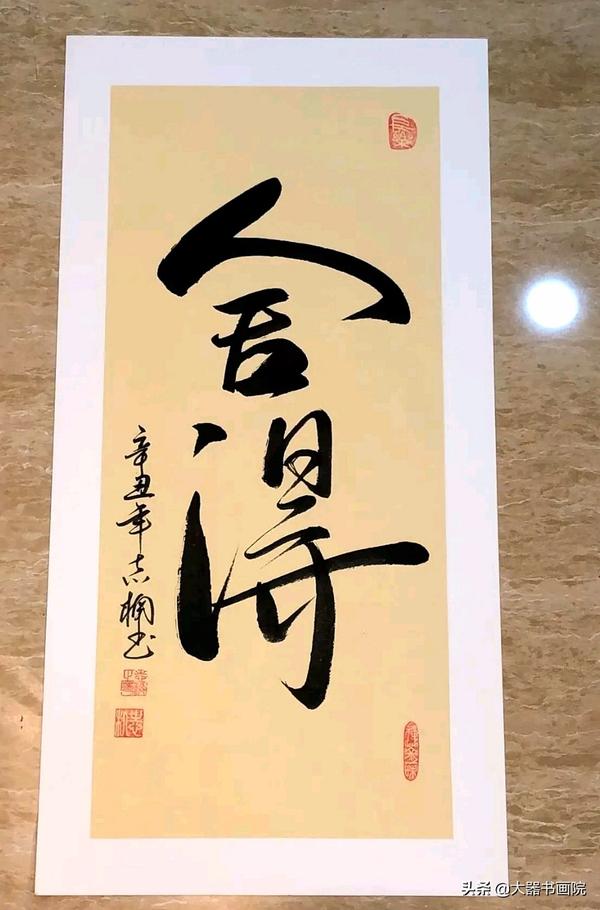 舍得
辛丑年志楠书
头条 @大器书画院